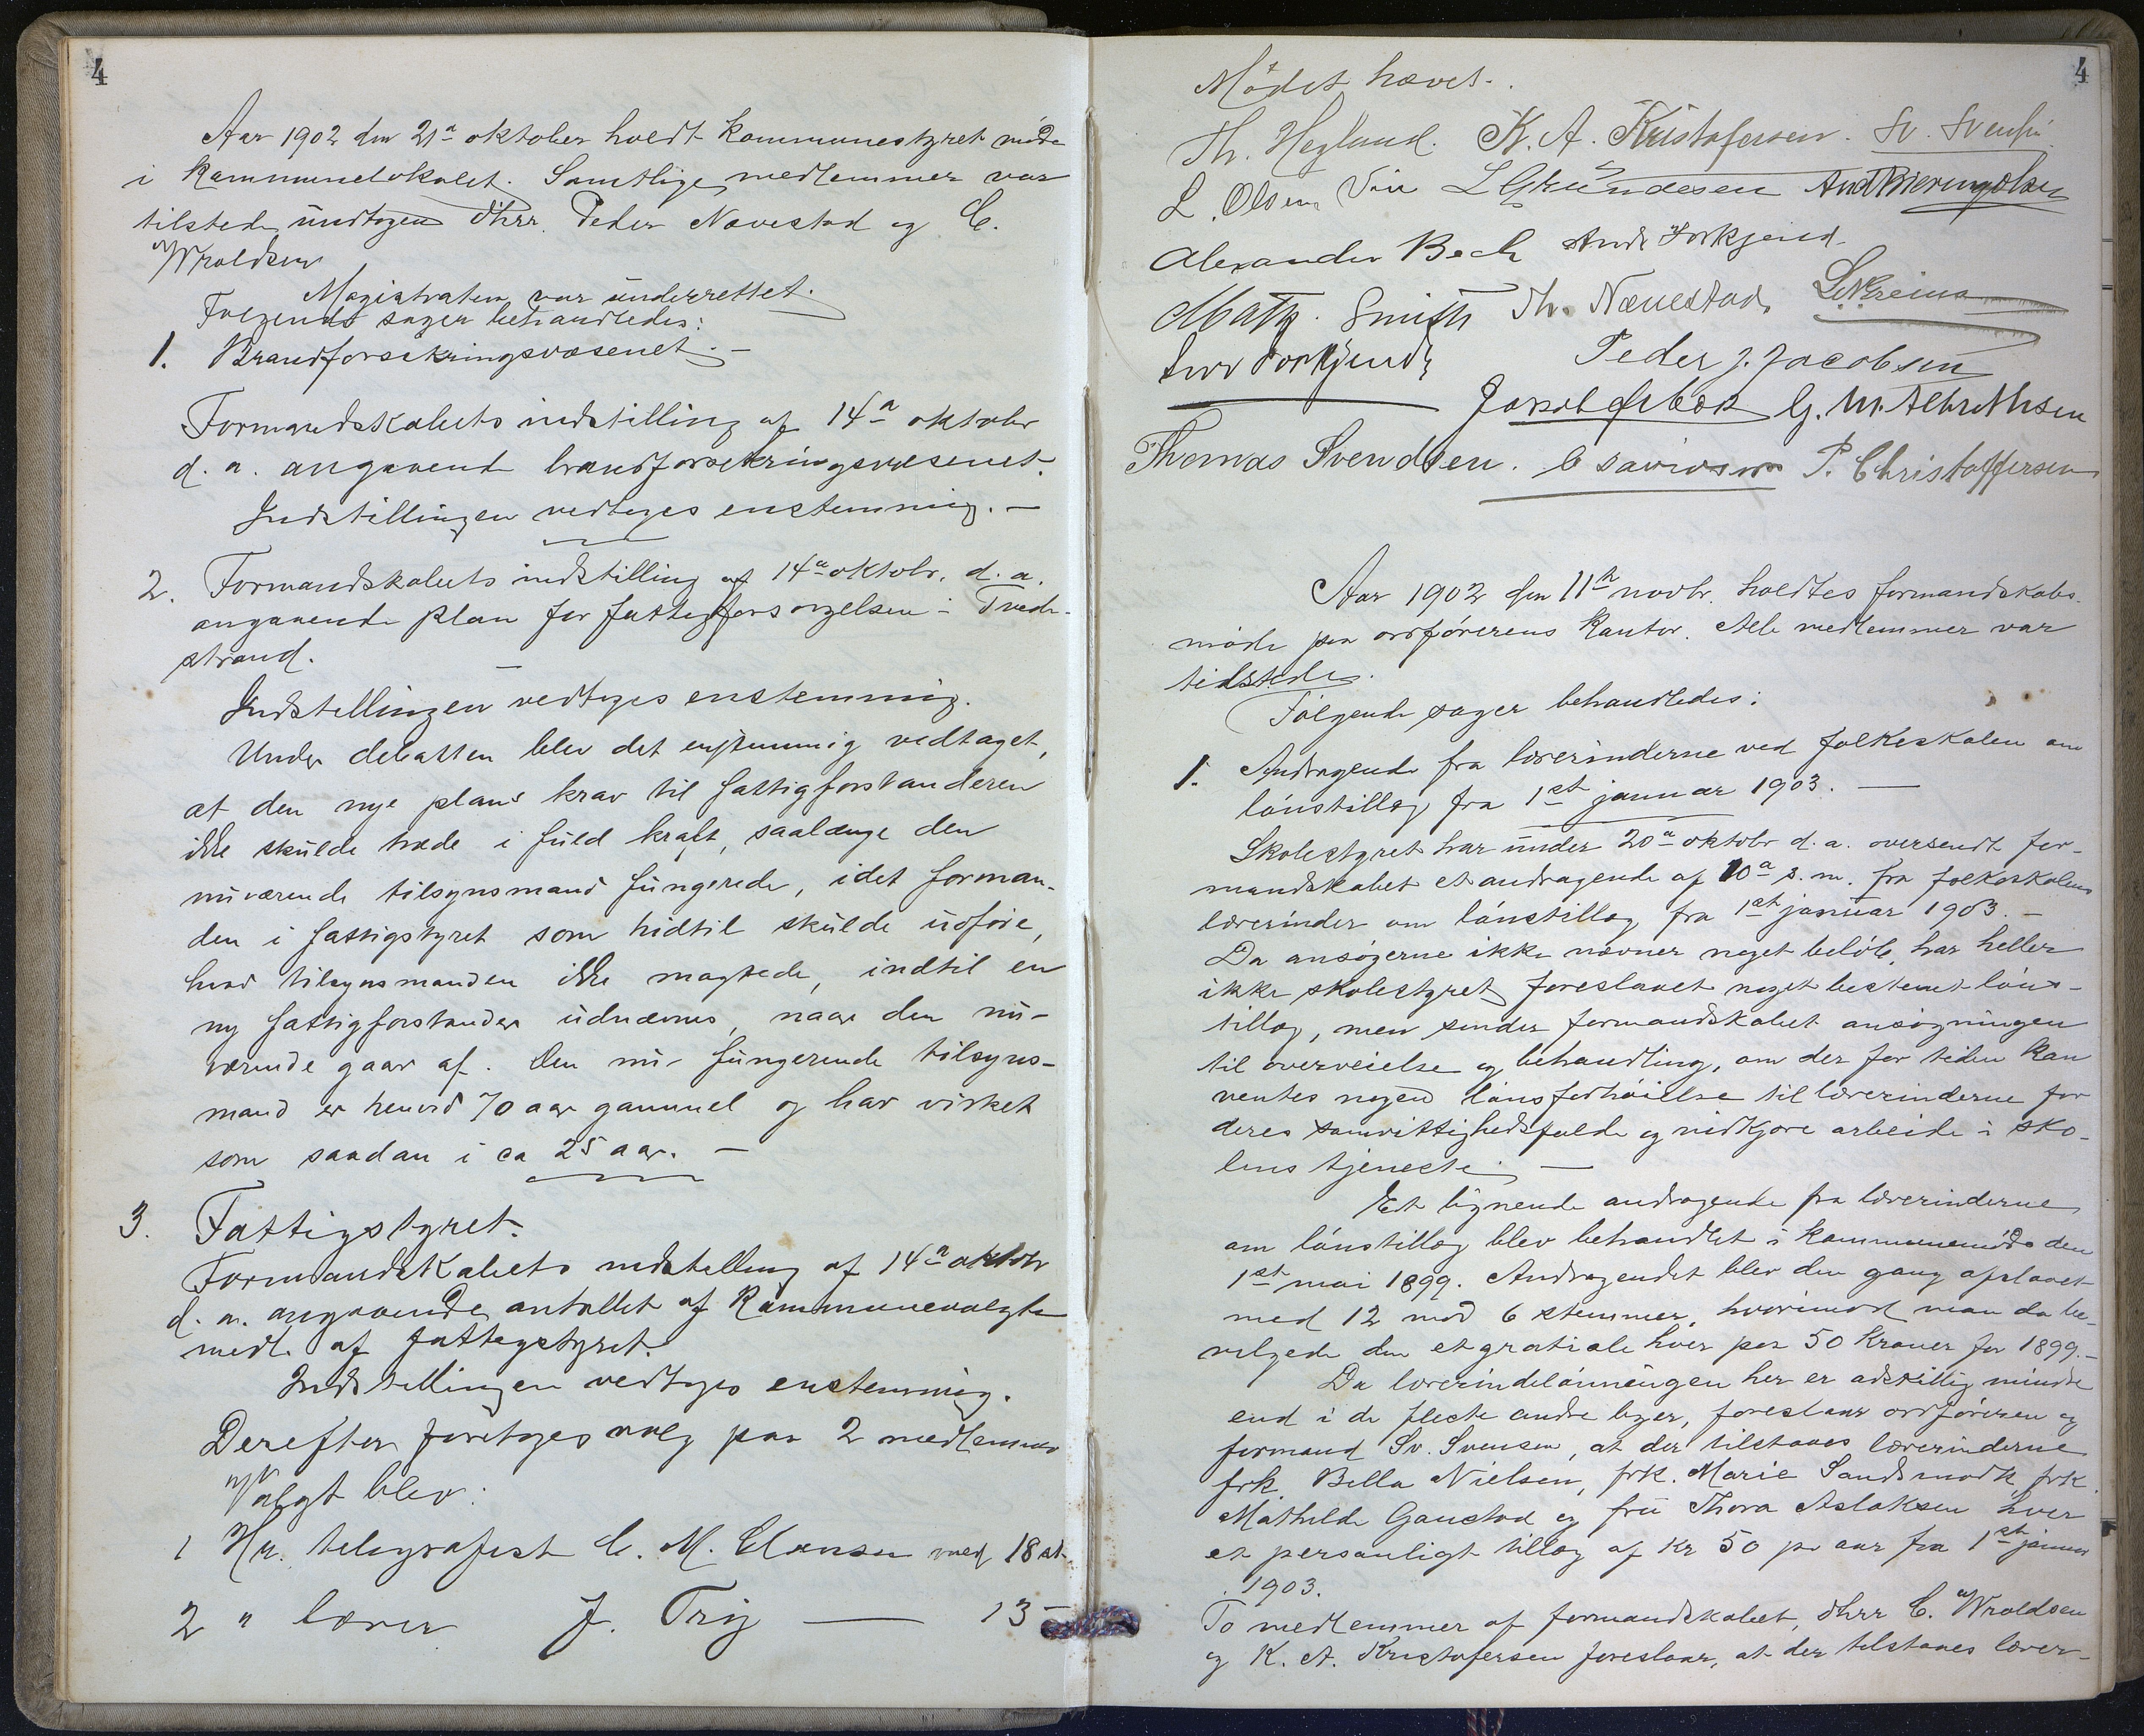 4
Aar 1902 den 21de oktober holdt kommunestyret møde
i kommunelokalet. Samtlige medlemmer var
tilstede undtagen dhrr. Peder Nævestad og C.
Wroldsen
Magistraten var underrettet.
Følgende sager behandledes:
1. Brandforsikringsvæsenet. –
Formandskabets indstilling af 14de oktober
d. a. angaaende brandforsikringsvæsenet.
Indstillingen vedtoges enstemmig. –
2. Formandskabets indstilling af 14de oktobr. d. a.
angaaende plan for fattigforsorgelsen i Tvede-
strand. –
Indstillingen vedtoges enstemmig.
Under debatten blev det enstemmig vedtaget,
at den nye plans krav til fattigforstanderen
ikke skulde træde i fuld kraft, saalænge den
nuværende tilsynsmand fungerede, idet forman-
den i fattigstyret som hidtil skulde udføre,
hvad tilsynsmanden ikke magtede, indtil en
ny fattigforstander udnævnes, naar den nu-
værende gaar af. Den nu fungerende tilsyns-
mand er henved 70 aar gammel og har virket
som saadan i ca 25 aar. –
3. Fattigstyret.
Formandskabets indstilling af 14de oktobr
d. a. angaaende antallet af kommunevalgte
medl. af fattigstyret.
Indstillingen vedtoges enstemmig.
Derefter foretoges valg paa 2 medlemmer
Valgt blev:
1 Hr. telegrafist C. M. Clausen med 18 st.
2 " lærer J. Trij — 13 –
4
Mødet hævet.
Th. Hegland. K. A. Kristofersen. Sv. Svensen
L. Olsen Vin L Gkundesen
Alexander Bech And Torkjend.
Math. Smith Th. Nævestad
Peder J. Jacobsen
G. M. Albrethsen
Thomas Svendsen. P. Christoffersen
Aar 1902 den 11te novbr. holdtes formandskabs-
møde paa ordførerens kontor. Alle medlemmer var
tilstede.
Følgende sager behandledes:
1. Andragende fra lærerinderne ved folkeskolen om
lønstillæg fra 1st januar 1903. —
Skolestyret har under 20de oktobr d. a. oversendt for-
mandskabet et andragende af 10de s. m. fra folkeskolens
lærerinder om lønstillæg fra 1st januar 1903. –
Da ansøgerne ikke nævner noget beløb, har heller
ikke skolestyret foreslaaet noget bestemt løns-
tillæg, men sender formandskabet ansøgningen
til overveielse og behandling, om der for tiden kan
ventes nogen lønsforhøielse til lærerinderne for
deres samvittighedsfulde og nidkjære arbeide i sko-
lens tjeneste. —
Et lignende andragende fra lærerinderne
om lønstillæg blev behandlet i kommunemøde den
1st mai 1899. Andragendet blev den gang afslaaet
med 12 mod 6 stemmer, hvorimod man da be-
vilgede dem et gratiale hver paa 50 kroner for 1899. –
Da lærerindelønningen her er adskillig mindre
end i de fleste andre byer, foreslaar ordføreren og
formand Sv. Svensen, at der tilstaaes lærerinderne
frk. Bella Nielsen, frk. Marie Sandsmark, frk.
Mathilde Gaustad og fru Thora Aslaksen hver
et personligt tillæg af kr 50 pr aar fra 1st januar
1903.
To medlemmer af formandskabet, dhrr C. Wroldsen
og K. A. Kristofersen foreslaar, at der tilstaaes lærer-